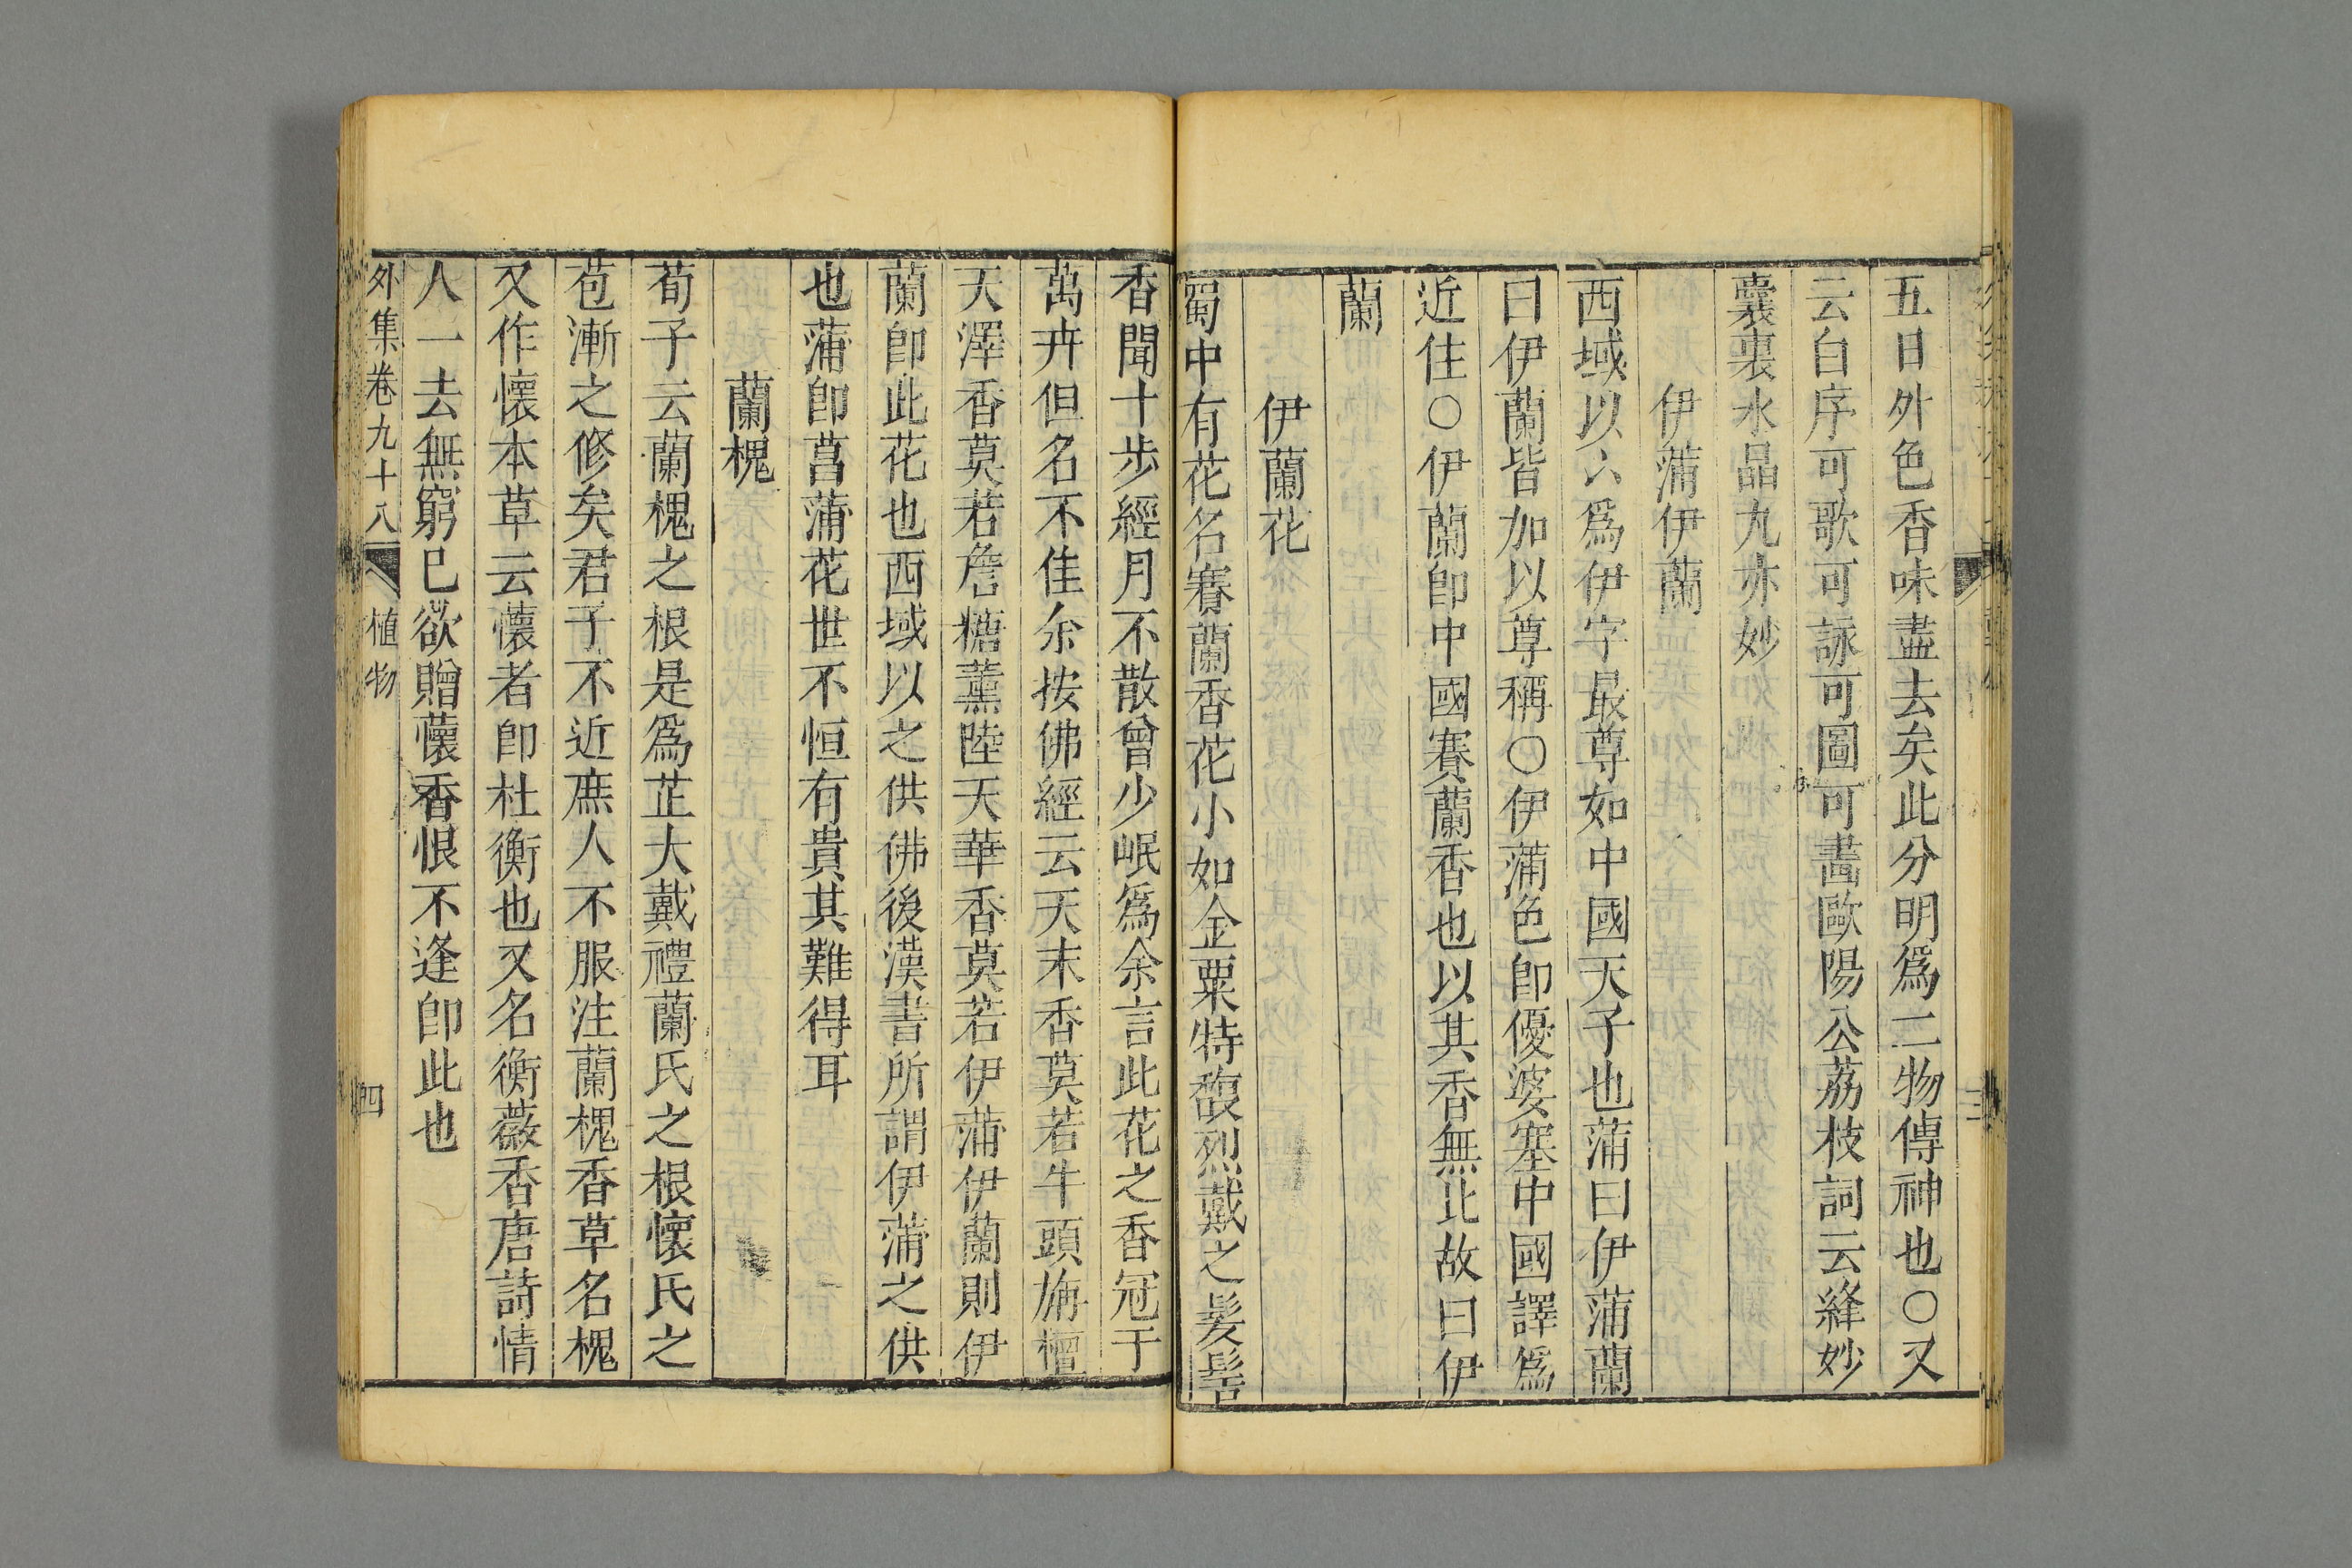 五日外色香味盡去矣此分明爲二物傳神也○又
云白序可歌可詠可圖可畵歐陽公荔枝詞云絳紗
囊裏水晶丸亦妙
伊蒲伊蘭
西域以∴爲伊字最尊如中國天子也蒲曰伊蒲蘭
曰伊蘭皆加以尊稱○伊蒲色卽優婆塞中國譯爲
近住○伊蘭卽中國賽蘭香也以其香無比故曰伊
蘭
伊蘭花
蜀中有花名賽蘭香花小如金粟特馥烈戴之髮髻
香聞十步經月不散曾少岷爲余言此花之香冠于
萬卉但名不佳余按佛經云天末香莫若牛頭旃檀
天澤香莫若詹糖薰陸天華香莫若伊蒲伊蘭則伊
蘭卽此花也西域以之供佛後漢書所謂伊蒲之供
也蒲卽菖蒲花世不恒有貴其難得耳
蘭槐
荀子云蘭槐之根是爲芷大戴禮蘭氏之根懷氏之
苞漸之修矣君子不近庶人不服注蘭槐香草名槐
又作懷本草云懷者卽杜衡也又名衡薇香唐詩情
人一去無窮已欲贈懷香恨不逢卽此也
外集卷九十八 植物 四
三